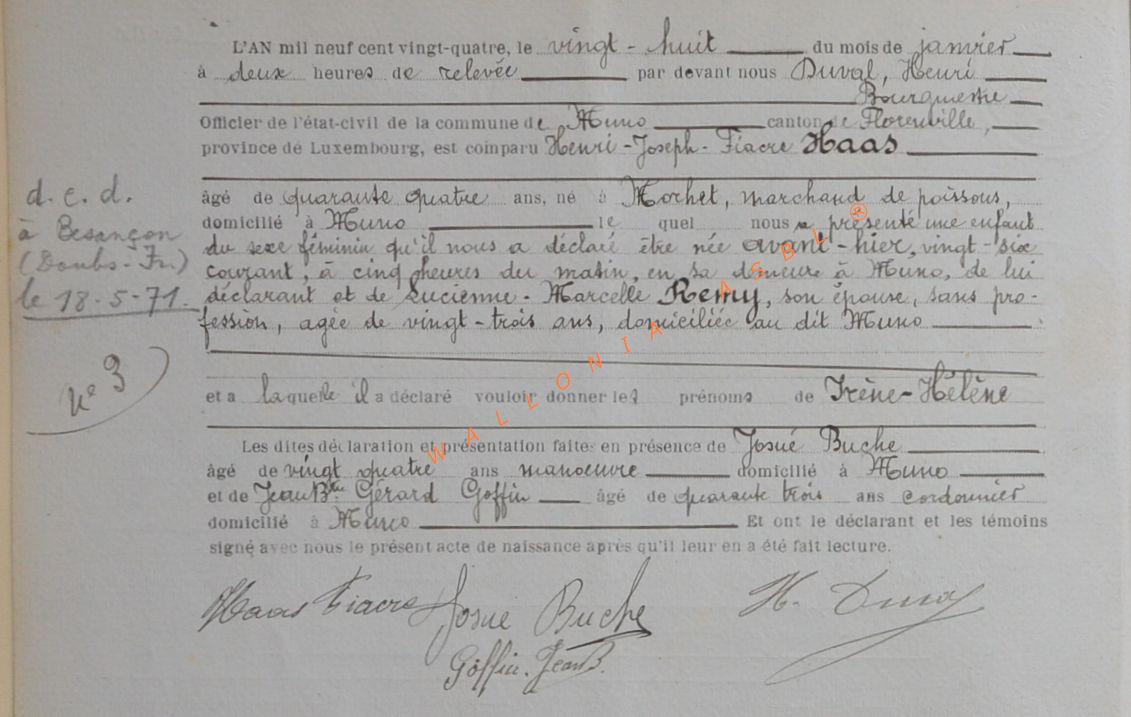 L'AN mil neuf cent vingt-quatre, le vingt-huit du mois de janvier
à deux heures de relevée par devant nous Duval, Henri
Bourgmestre
Officier de l'état-civil de la commune de Muno canton de Florenville,
province de Luxembourg, est comparu Henri-Joseph-Fiacre Haas
âgé de quarante quatre ans, né à Mochet, marchand de poissons,
domicilié à Muno le quel nous a présenté une enfant
du sexe féminin qu'il nous a déclaré être née avant-hier, vingt-six
courant, à cinq heures du matin, en sa demeure à Muno, de lui
déclarant et de Lucienne-Marcelle Remy, son épouse, sans pro-
fession, agée de vingt-trois ans, domiciliée au dit Muno
et a laquelle il a déclaré vouloir donner les prénoms de Irène-Hélène
Les dites déclaration et présentation faites en présence de Josué Buche
âgé de vingt quatre ans manoeuvre domicilié à Muno
et de Jean Bte Gérard Goffin âgé de quarante trois ans cordonnier
domicilié à Muno Et ont le déclarant et les témoins
signé avec nous le présent acte de naissance après qu'il leur en a été fait lecture.
Haas Fiacre Josué Buche H. Duval
Goffin. JeanB.
d.c.d.
à Besançon
(Doubs-Fr.)
le 18-5-71.
N° 3
WALLONIA ASBL ®